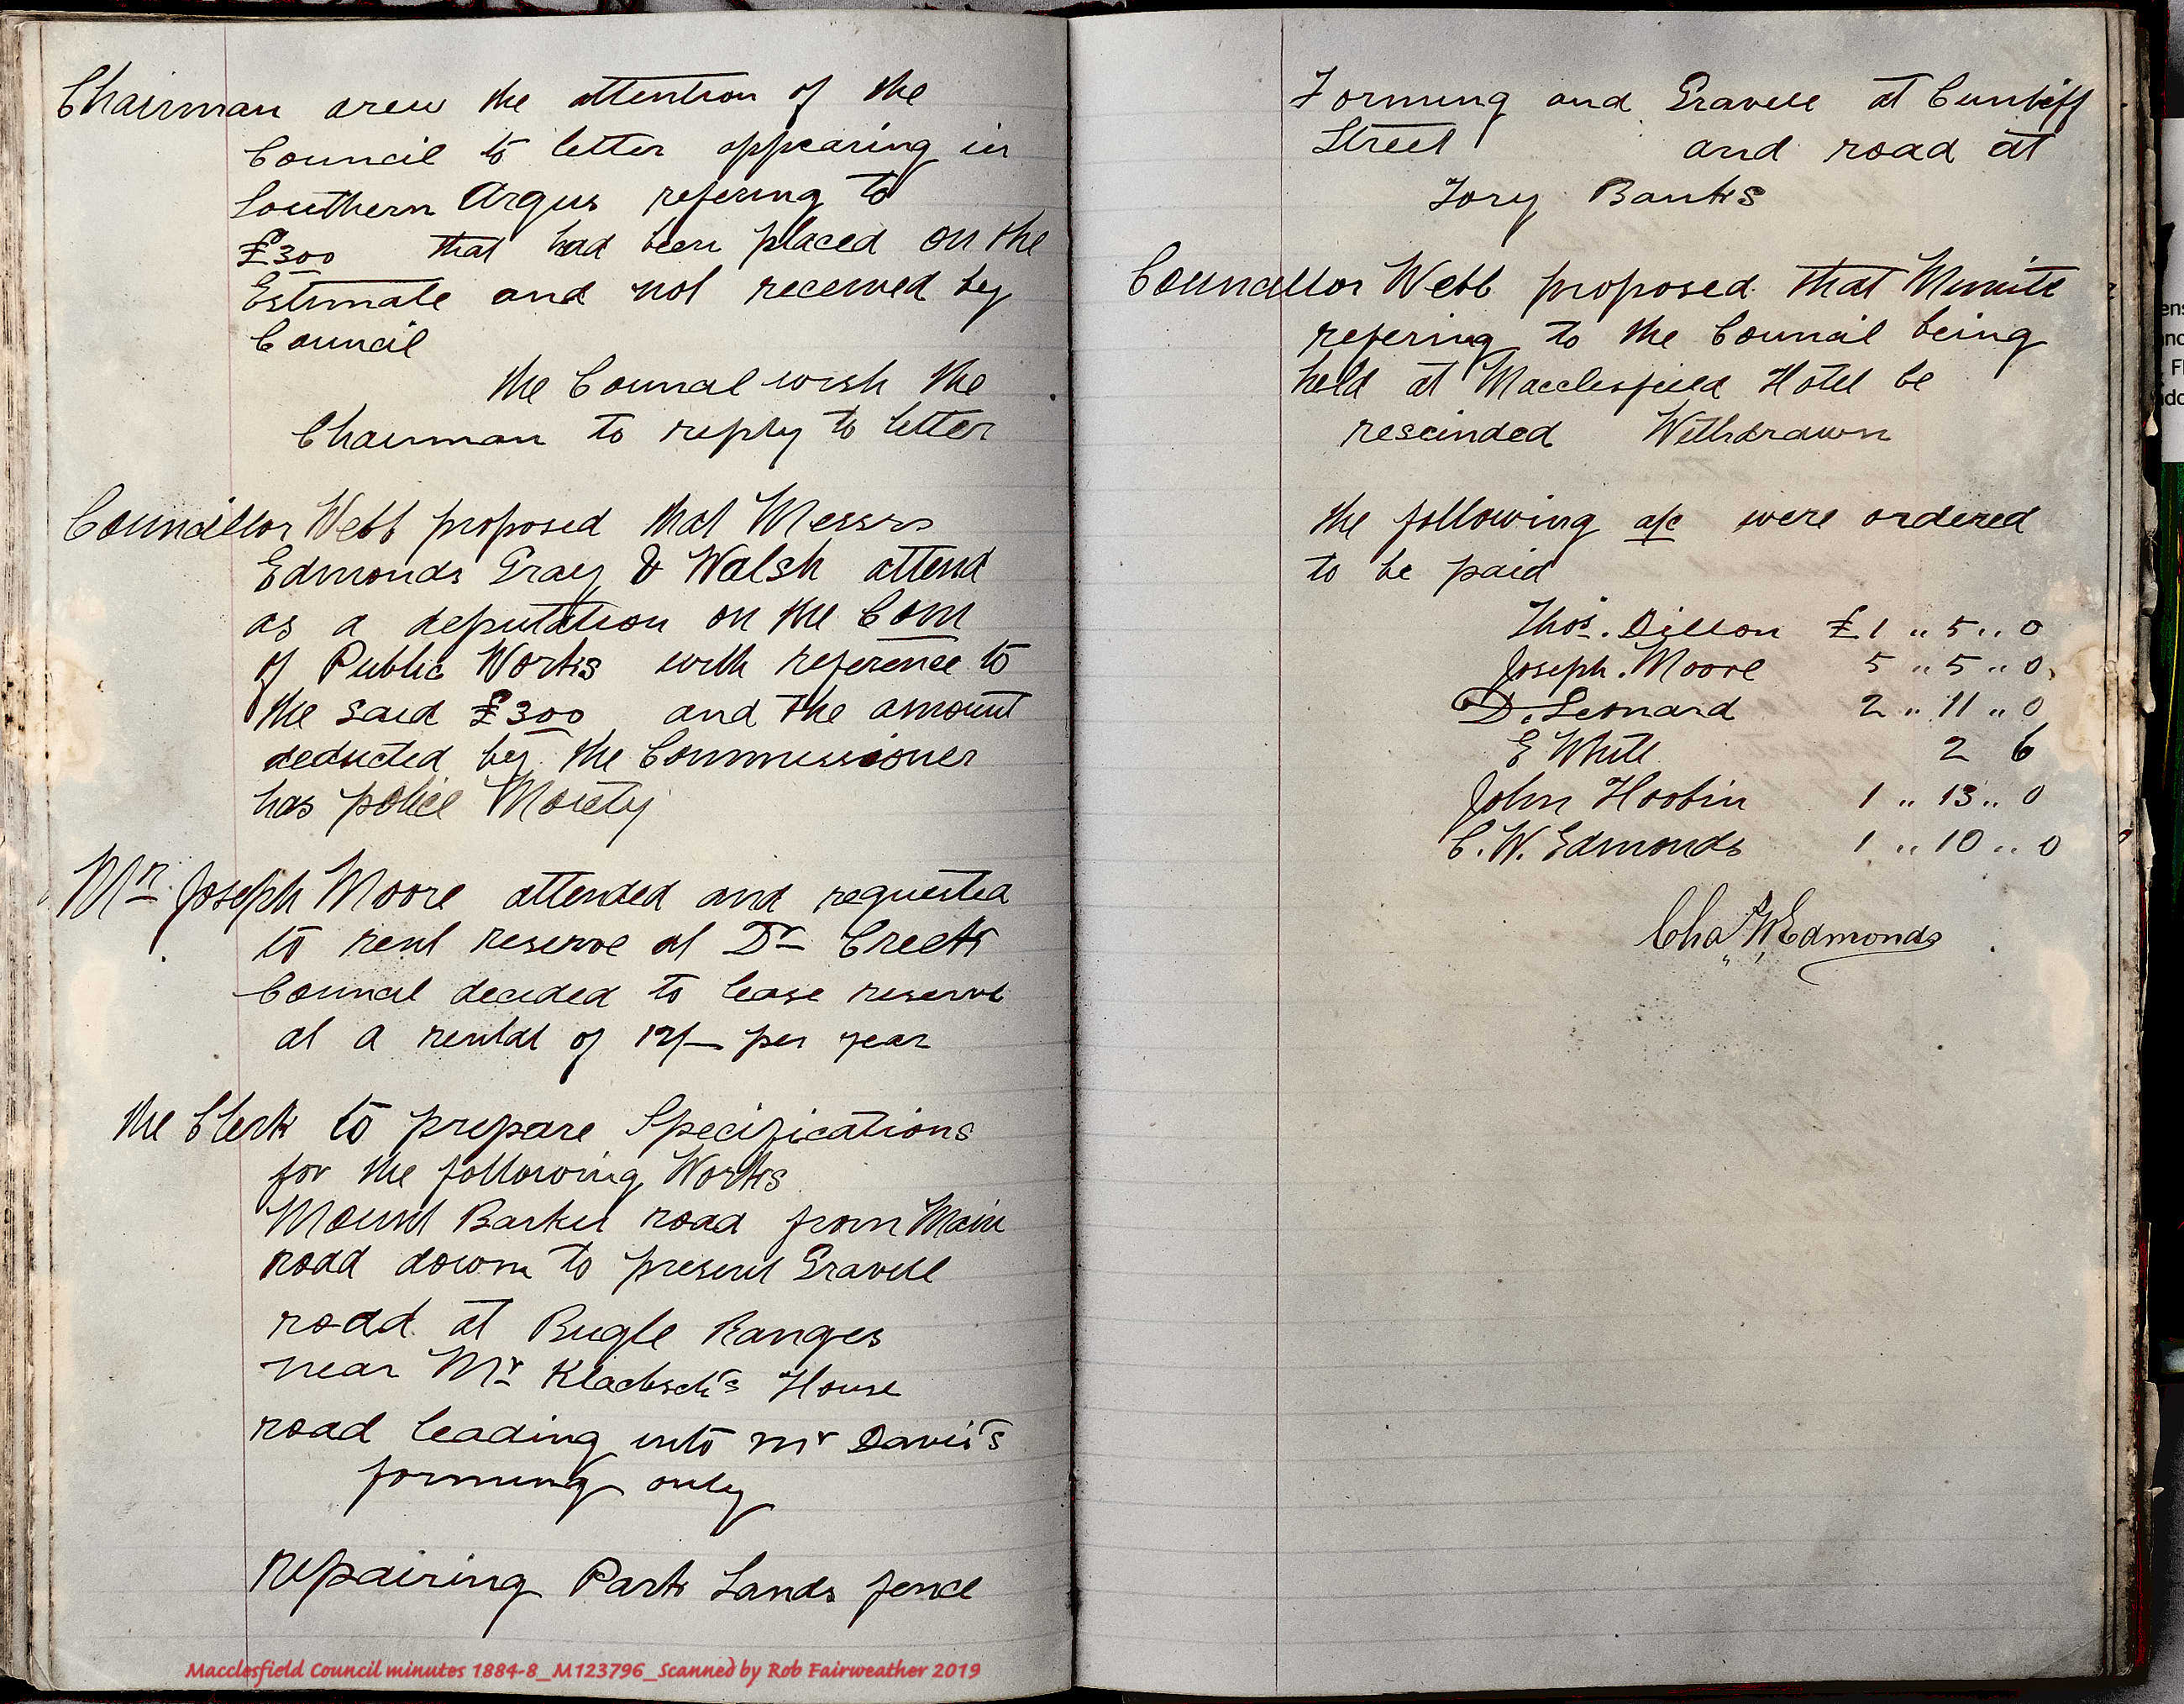 Chairman drew the attention of the
Council to letter appearing in
Southern Argus refering to
£300 that had been placed on the
Estimate and not received by
Council
the Council wish the
Chairman to reply to letter
Councillor Webb proposed that Messrs
Edmonds Gray & Walsh attend
as a deputation on the Com
of Public Works with reference to
the said £300 and the amount
deducted by the Commissioner
has police Moiety
Mr. Joseph Moore attended and requested
to rent reserve at Dr Creek
Council decided to lease reserve
at a rental of 12/- per year
the Clerk to prepare Specifications
for the following Works
Mount Barker road from Main
road down to present Gravell
road at Bugle Ranges
near Mr Klaebsch's House
road leading into Mr Davis's
forming only
repairing Park Lands fence
Forming and Gravell at Cunliff
Street and road at
Tory Banks
Councillor Webb proposed that Minute
refering to the Council being
held at Macclesfield Hotel be
rescinded Withdrawn
the following a/c were ordered
to be paid
Thos. Dillon £1 " 5 " 0
Joseph. Moore 5 " 5 " 0
D. Leonard 2 " 11 " 0
E White 2 6
John Hoobin 1 " 13 " 0
C. W. Edmonds 1 " 10 " 0
Chas W Edmonds
Macclesfield Council minutes 1884-8_M123796_Scanned by Rob Fairweather 2019